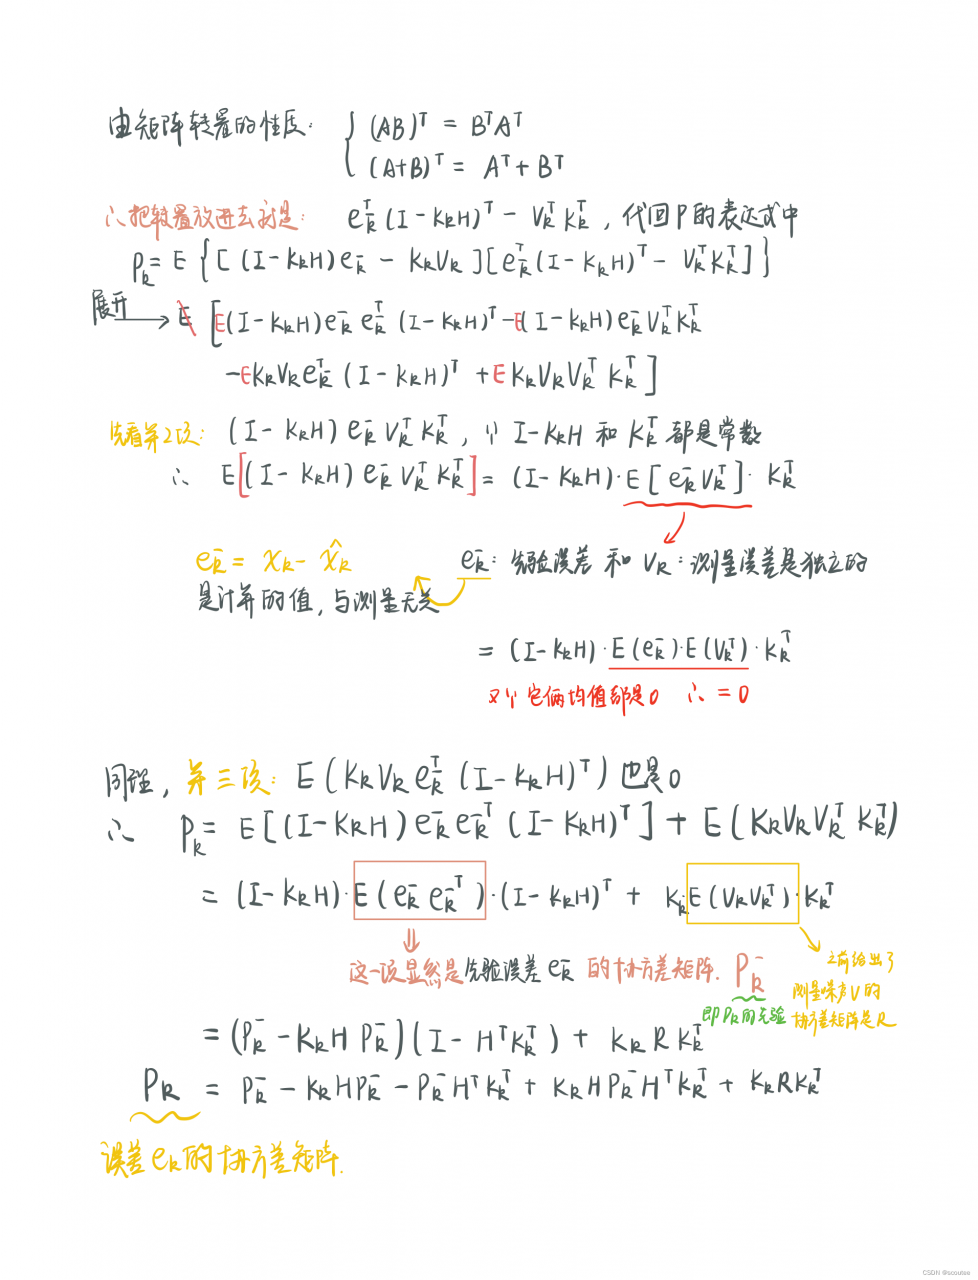 由矩阵转置的性质: { (AB)ᵀ = BᵀAᵀ
(A+B)ᵀ = Aᵀ + Bᵀ
∴把转置放进去就是: e_k⁻ᵀ(I - K_kH)ᵀ - V_kᵀK_kᵀ, 代回P的表达式中
P_k = E{[(I - K_kH)e_k⁻ - K_kV_k][e_k⁻ᵀ(I - K_kH)ᵀ - V_kᵀK_kᵀ]}
展开 → E[E(I - K_kH)e_k⁻ e_k⁻ᵀ(I - K_kH)ᵀ - E(I - K_kH)e_k⁻V_kᵀK_kᵀ
- EK_kV_ke_k⁻ᵀ(I - K_kH)ᵀ + EK_kV_kV_kᵀK_kᵀ]
先看第2项: (I - K_kH)e_k⁻V_kᵀK_kᵀ, ∵ I - K_kH 和 K_kᵀ 都是常数
∴ E[(I - K_kH)e_k⁻V_kᵀK_kᵀ] = (I - K_kH)·E[e_k⁻V_kᵀ]·K_kᵀ
e_k⁻ = x_k - x̂_k⁻ e_k⁻: 先验误差 和 V_k: 测量误差是独立的
是计算的值, 与测量无关
= (I - K_kH)·E(e_k⁻)·E(V_kᵀ)·K_kᵀ
又∵它俩均值都是0 ∴ = 0
同理, 第三项: E(K_kV_ke_k⁻ᵀ(I - K_kH)ᵀ) 也是0
∴ P_k = E[(I - K_kH)e_k⁻e_k⁻ᵀ(I - K_kH)ᵀ] + E(K_kV_kV_kᵀK_kᵀ)
= (I - K_kH)·E(e_k⁻e_k⁻ᵀ)·(I - K_kH)ᵀ + K_kE(V_kV_kᵀ)·K_kᵀ
这一项显然是先验误差e_k⁻的协方差矩阵. P_k⁻
即P_k的先验
之前给出了
测量噪声V的
协方差矩阵是R
= (P_k⁻ - K_kHP_k⁻)(I - HᵀK_kᵀ) + K_kRK_kᵀ
P_k = P_k⁻ - K_kHP_k⁻ - P_k⁻HᵀK_kᵀ + K_kHP_k⁻HᵀK_kᵀ + K_kRK_kᵀ
误差e_k的协方差矩阵.